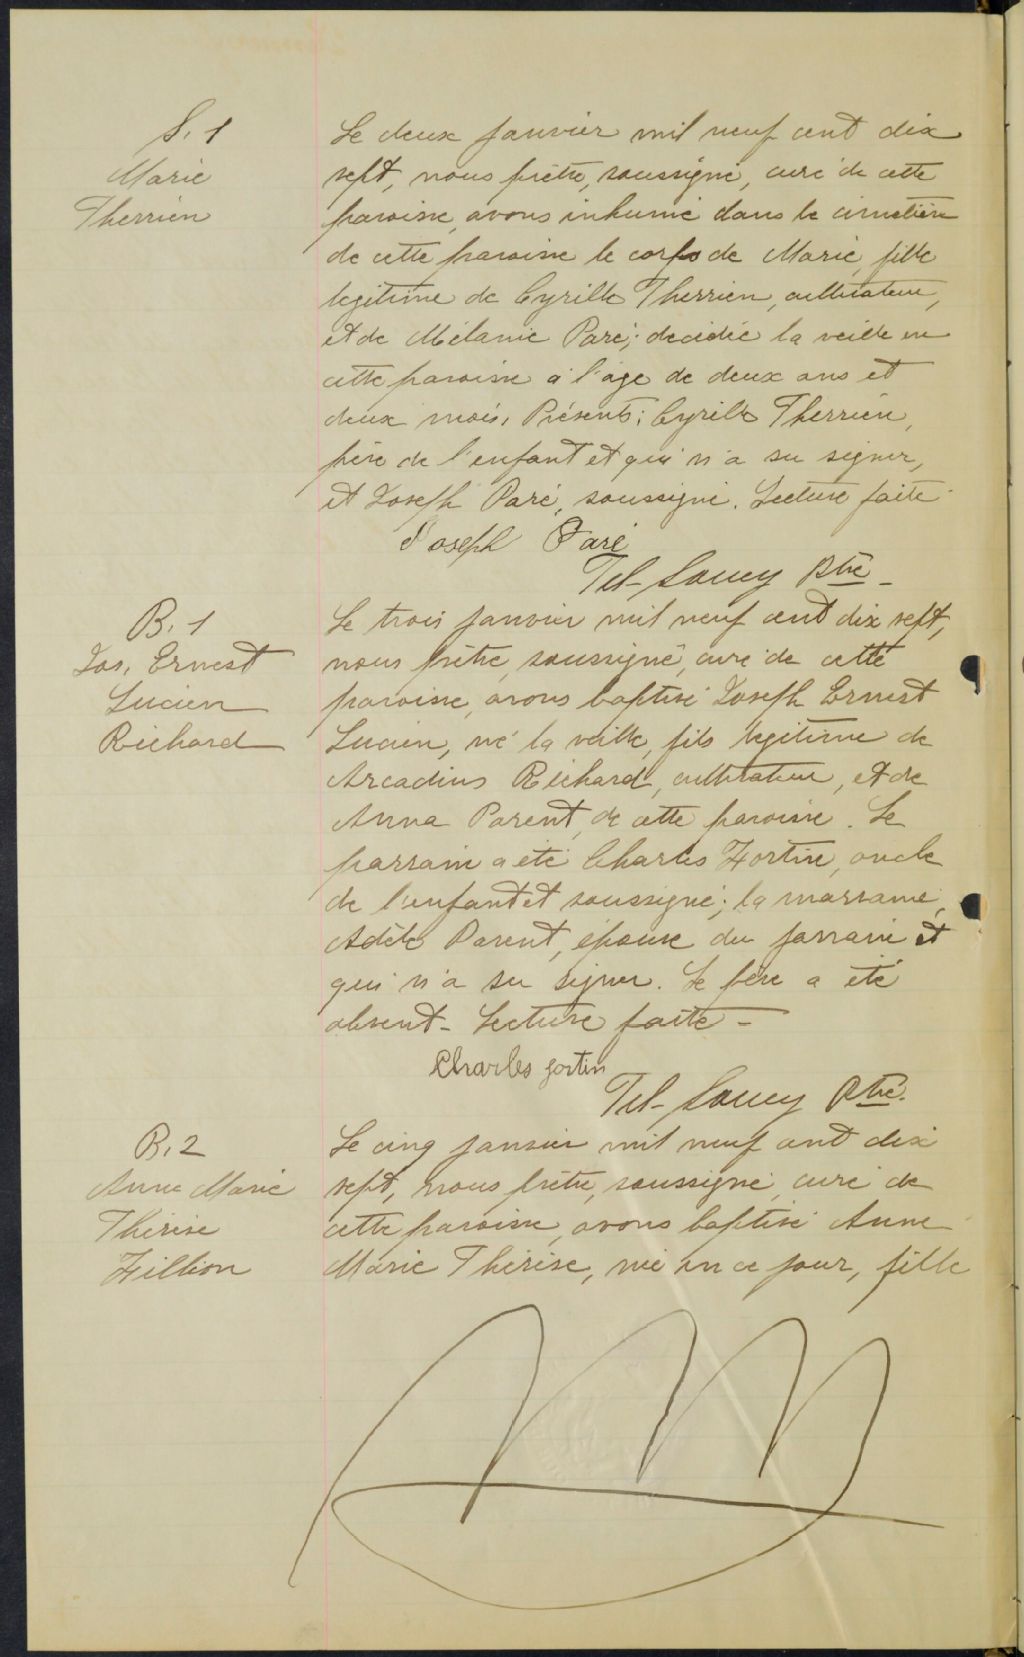 S. 1
Marie
Therrien
Le deux janvier mil neuf cent dix
sept, nous prêtre, soussigné, curé de cette
paroisse, avons inhumé dans le cimetière
de cette paroisse le corps de Marie, fille
legitime de Cyrille Therrien, cultivateur,
et de Mélanie Paré; decédée la veille en
cette paroisse à l'age de deux ans et
deux mois. Présents: Cyrille Therrien,
père de l'enfant et qui n'a su signer,
et Joseph Paré, soussigné. Lecture faite
Joseph Paré
Tel- Soucy Ptre -
B. 1
Jos. Ernest
Lucien
Richard
Le trois janvier mil neuf cent dix sept,
nous prêtre, soussigné, curé de cette
paroisse, avons baptisé Joseph Ernest
Lucien, né la veille, fils legitime de
Arcadius Richard, cultivateur, et de
Anna Parent, de cette paroisse. Le
parrain a été Charles Fortin, oncle
de l'enfant et soussigné; la marraine,
Adèle Parent, épouse du parrain et
qui n'a su signer. Le père a été
absent - Lecture faite -
Charles fortin
Tel- Soucy Ptre.
B. 2
Anne Marie
Thérèse
Fillion
Le cinq janvier mil neuf cent dix
sept, nous prêtre, soussigné, curé de
cette paroisse, avons baptisé Anne
Marie Thérèse, née en ce jour, fille